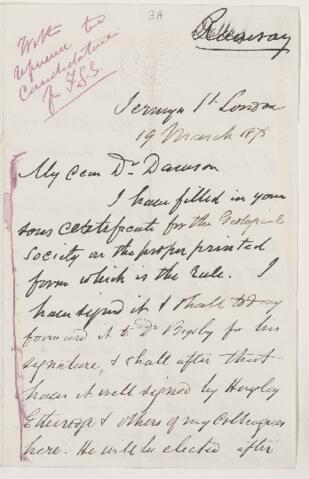 3A
Ramsay
With
reference to
Candidature
of F.G.S.
Jermyn St. London
19 March 1878
My dear Dr. Dawson
I have filled in your
sons certificate for the Geological
Society on the proper printed
form which is the rule. I
have signed it & shall today
forward it to Dr Bigsby for his
signature, & shall after that
have it well signed by Huxley
Etheridge & others of my Colleagues
here. He will be elected after